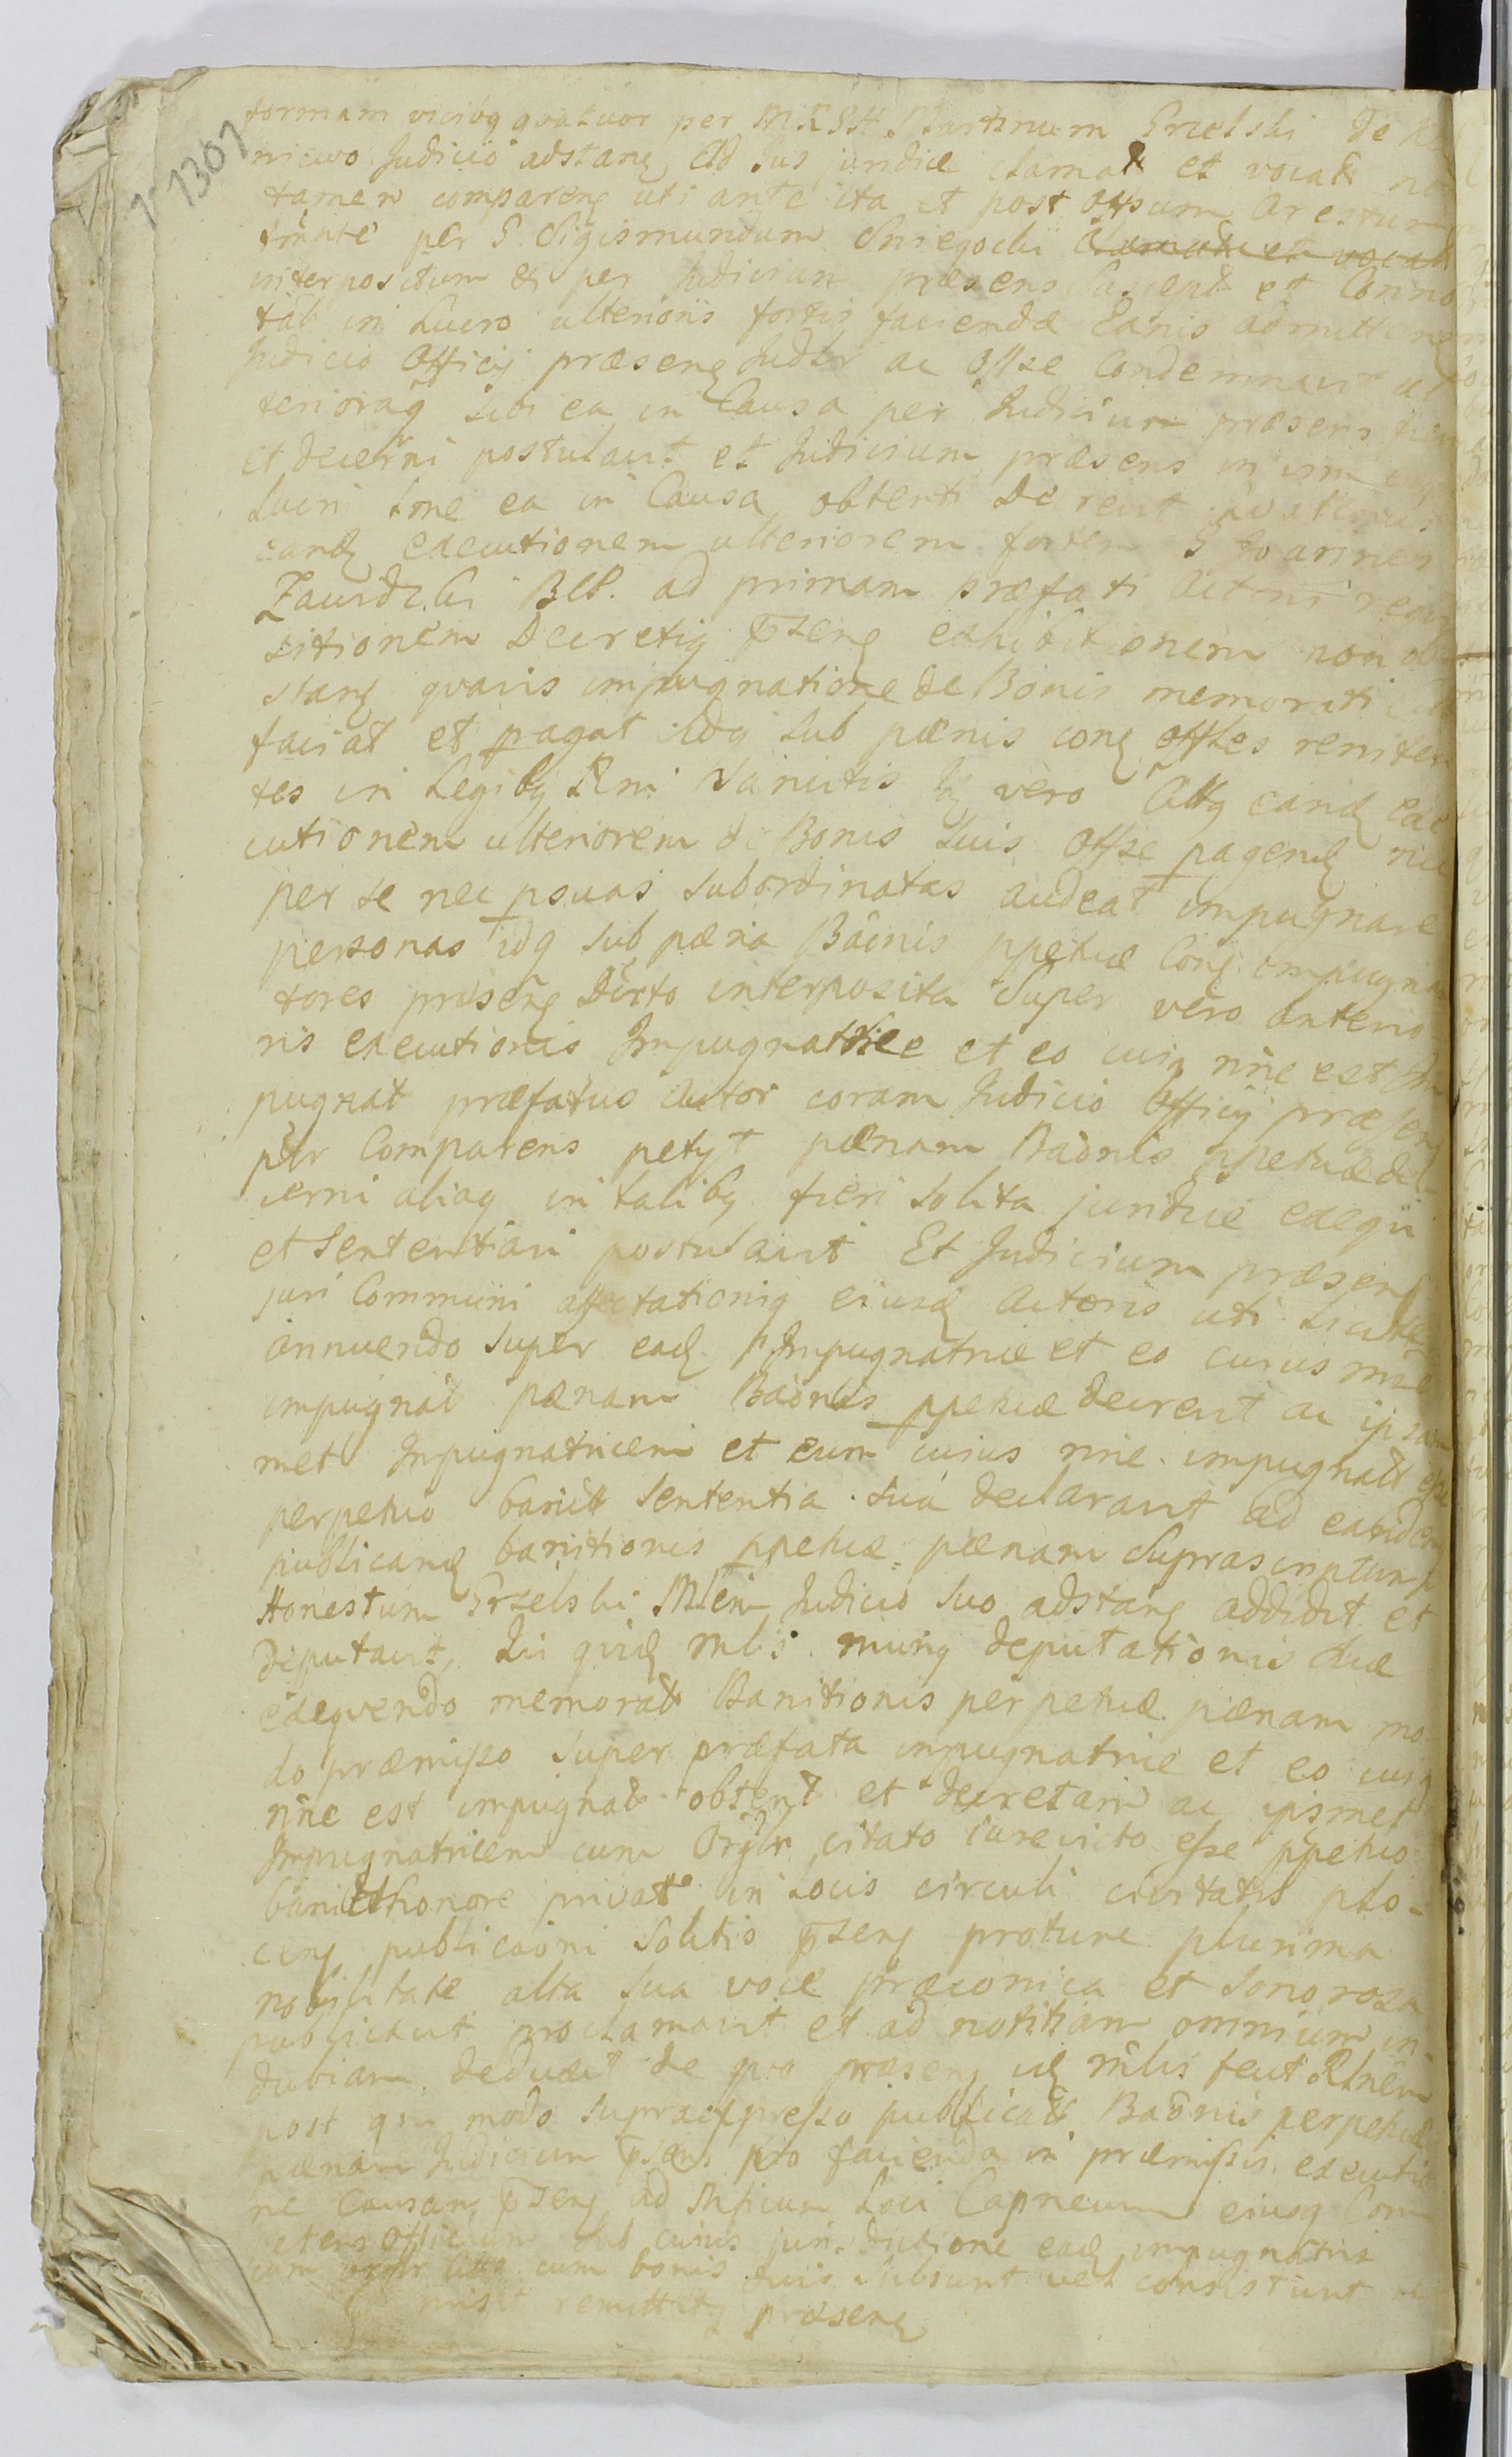 1307
formam vicibq quatuor per MRSH Martinum Przelski de
niewo Judicio adstanę Ad Jus juridice clamat et vocat non
tamen comparenę uti ante ita et post Oppsum Arestum
per G. Sigismundum Sniegocki clamat et vocat
interpositum & per Judicium praesens Suscept et Conno
tat in Lucro ulterioris fortis faciendae Eönis admitten
Judicio Officij praesenę Judlr ac Offse Condemnavit ul
teriorаq sibi ea in Causa per Judicium praesens fieri
et decerni postulavit et Judicium praesens in vim
Lucri sone ea in Causa obtenti Decrevit Quatenus
eandę executionem ulteriorem fortem G Joannes
Zawidzki BCP. ad primam praefati Actoris requi
sitionem Decretiq pseng exhibitionem non ob
stanę quavis impugnatione de Bonis memorati
faciat et pagat idq sub paenis conę offles reniten
tes in Legibq Rni Sancitis Is vero Cittq eandę exe
cutionem ulteriorem de Bonis Suis Offse pagendę nec
per se nec psuas subordinatas audeat impugnare
personas idq sub paena Baönis ppetuae Conę Impugna
tores praesenę Dërto interposita Super vero anterio
ris executionis Impugnatrice et eo cuiq nïne est im
pugnat praefatus Actor coram Judicio Officij praesenę
plr Comparens petyt paenam Baönis ppetuae de
cerni aliaq in talibq fieri solita juridice exequi
et Sententiari postulavit Et Judicium praesens
juri Communi affectationiq eiusdę Actoris uti licitae
annuendo super eadę Impugnatrice et eo cuius nïne
impugnat paenam Baönis ppetuae decrevit ac ipsam
met Inpugnatricem et eum cuius nïne impugnat esse
perpetuo banitt Sententia sua declaravit ad eandem
publicandę banitionis ppetuae paenam Suprascriptum
Honestum Przelski Mlem Judicio suo adstanę addidit et
Deputavit, Qui quidę mlis munq deputationis suae
exequendo memorat Banitionis perpetuae paenam mo
do praemisso super praefata inpugnatrice et eo cuiq
nïne est impugnat obtent et decretam ac ipsmet
Impugnatricem cum Orglr citato iurevicto esse ppetuo
banitt et honore privat in Locis circuli civitatis plo-
cenę publicaöni Solitis pseng protunc plurima
nobilitate alta sua voce praeconica et Sonorosa
publicavit proclamavit et ad notitiam omnium in-
dubiam, deduxit de quo praesens idę mlis fecit Rlnem
post qm modo supraexpresso publicatt Baönis perpetuae
paenam Judicium psens pro facienda in praemissis executio
ne Causam pseng ad Offcium Loci Capneum eiusq Com
petens Officium sub cuius jurisdictione eadę impugnatrix
cum orglr citto cum bonis suis subsunt vel consistunt
misit remittitq praesenę